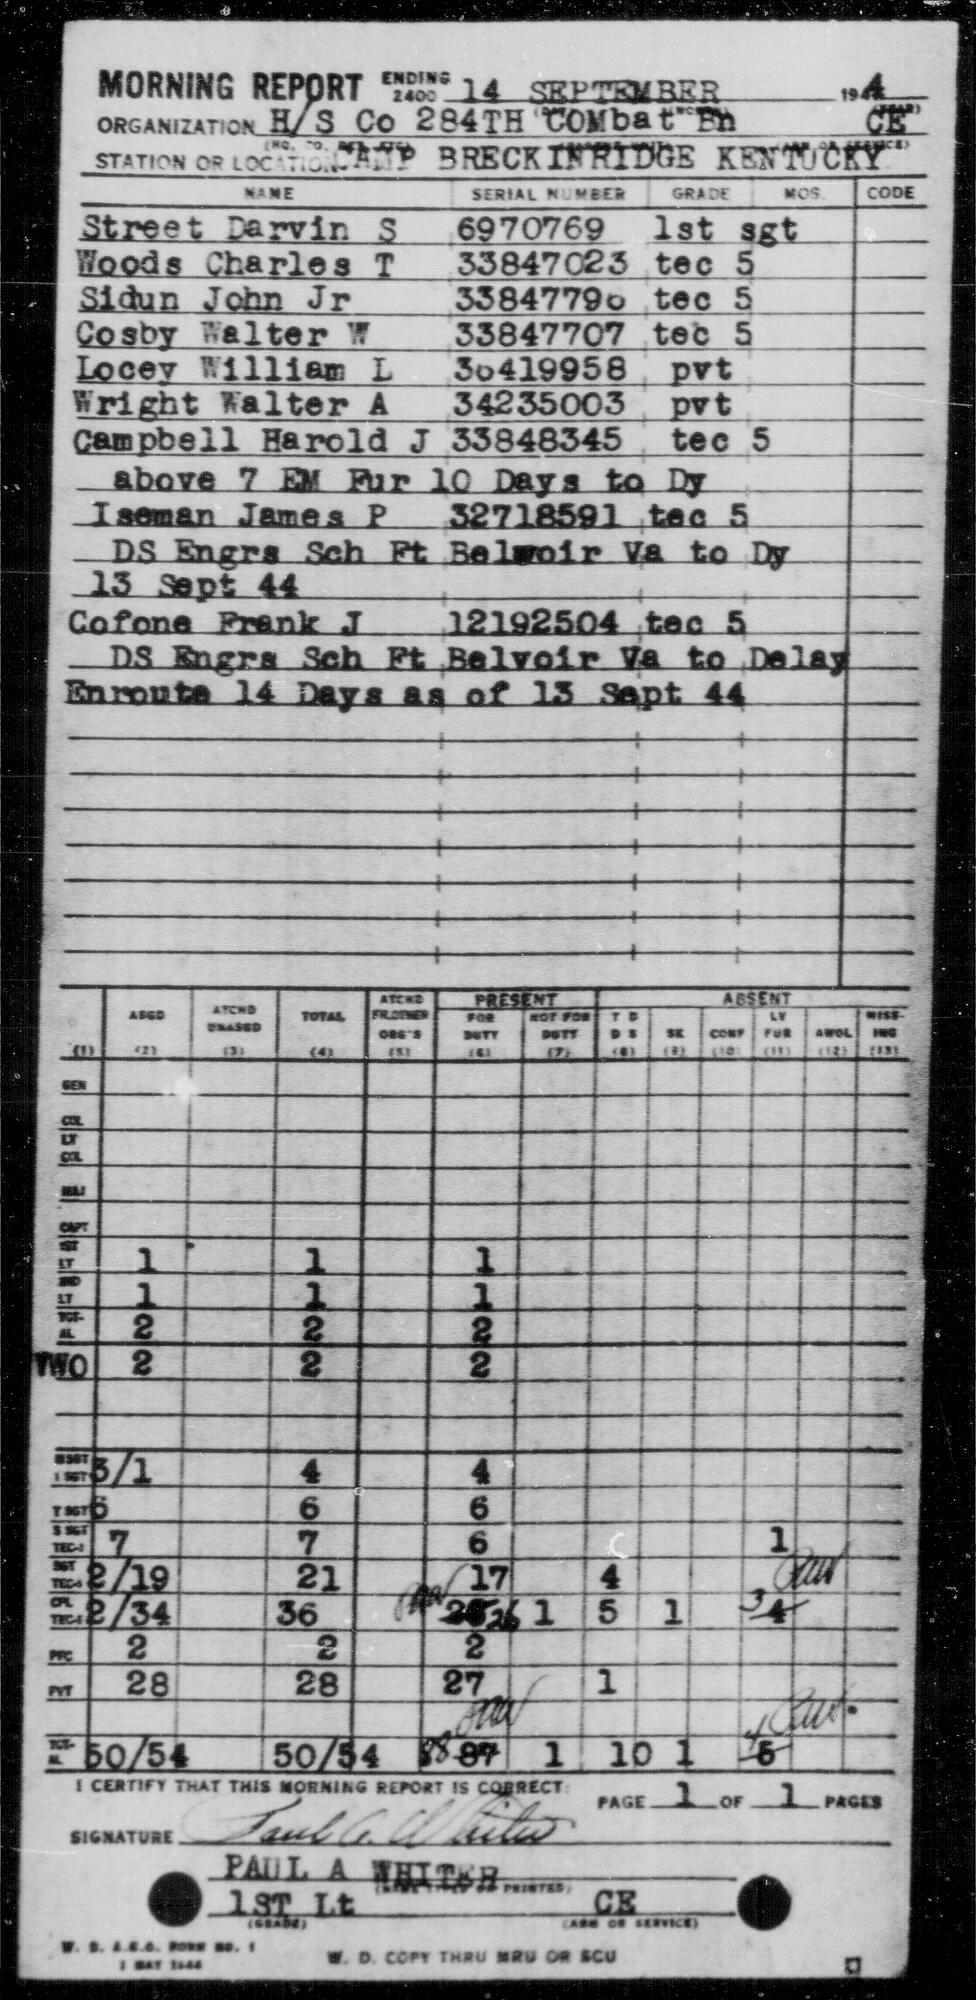 MORNING REPORT ENDING 2400 14 SEPTEMBER 1944
ORGANIZATION H/S Co 284TH COMbat Bn CE
STATION OR LOCATION CAMP BRECKINRIDGE KENTUCKY
NAME SERIAL NUMBER GRADE MOS. CODE
Street Darvin S 6970769 1st sgt
Woods Charles T 33847023 tec 5
Sidun John Jr 33847790 tec 5
Cosby Walter W 33847707 tec 5
Locey William L 30419958 pvt
Wright Walter A 34235003 pvt
Campbell Harold J 33848345 tec 5
above 7 EM Fur 10 Days to Dy
Iseman James P 32718591 tec 5
DS Engrs Sch Ft Belwoir Va to Dy
13 Sept 44
Cofone Frank J 12192504 tec 5
DS Engrs Sch Ft Belvoir Va to Delay
Enroute 14 Days as of 13 Sept 44
ASGD ATCHD UNASGD TOTAL ATCHD FR.OTHER ORG'S PRESENT FOR DUTY NOT FOR DUTY ABSENT T D D S SK CONF LV FUR AWOL MISSING
(1) (2) (3) (4) (5) (6) (7) (8) (9) (10) (11) (12) (13)
GEN
COL
LT COL
MAJ
CAPT
1ST LT 1 1 1
2ND LT 1 1 1
TOT-AL 2 2 2
TWO 2 2 2
M SGT 1 SGT 3/1 4 4
T SGT 6 6 6
S SGT TEC-3 7 7 6 1
SGT TEC-4 2/19 21 17 4
CPL TEC-5 2/34 36 26 1 5 1 3 4
PFC 2 2 2
PVT 28 28 27 1
TOT-AL 50/54 50/54 88 87 1 10 1 4 5
I CERTIFY THAT THIS MORNING REPORT IS CORRECT:
PAGE 1 OF 1 PAGES
SIGNATURE Paul A. Whiter
PAUL A WHITER
(NAME TYPED OR PRINTED)
1ST Lt CE
(GRADE) (ARM OR SERVICE)
W. D. A.G.O. FORM NO. 1
1 MAY 1944
W. D. COPY THRU MRU OR SCU